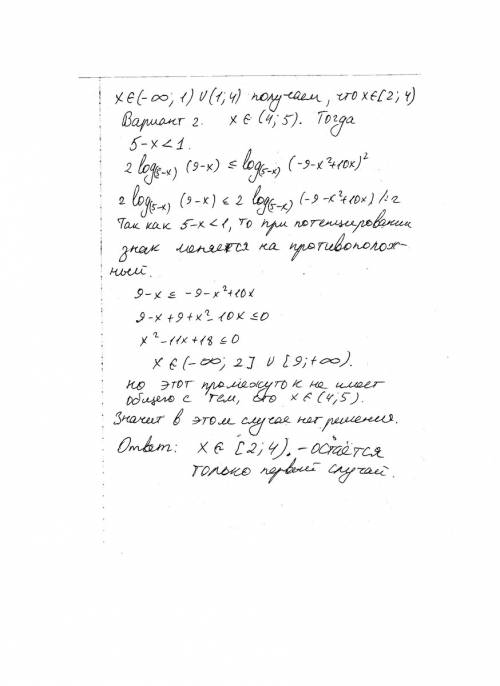 x∈(-∞; 1) ∪ (1; 4) получаем, что x∈[2; 4)
Вариант 2. x∈(4; 5). Тогда
5-x<1.
2 log(5-x) (9-x) ≤ log(5-x) (-9-x²+10x)²
2 log(5-x) (9-x) ≤ 2 log(5-x) (-9-x²+10x) /:2
Так как 5-x<1, то при потенцировании
знак меняется на противополож-
ный.
9-x ≤ -9-x²+10x
9-x+9+x²-10x ≤0
x²-11x+18 ≤0
x∈(-∞; 2] ∪ [9; +∞).
но этот промежуток не имеет
общего с тем, что x∈(4; 5).
Значит в этом случае нет решения.
Ответ: x∈ [2; 4). - остаётся
только первый случай.